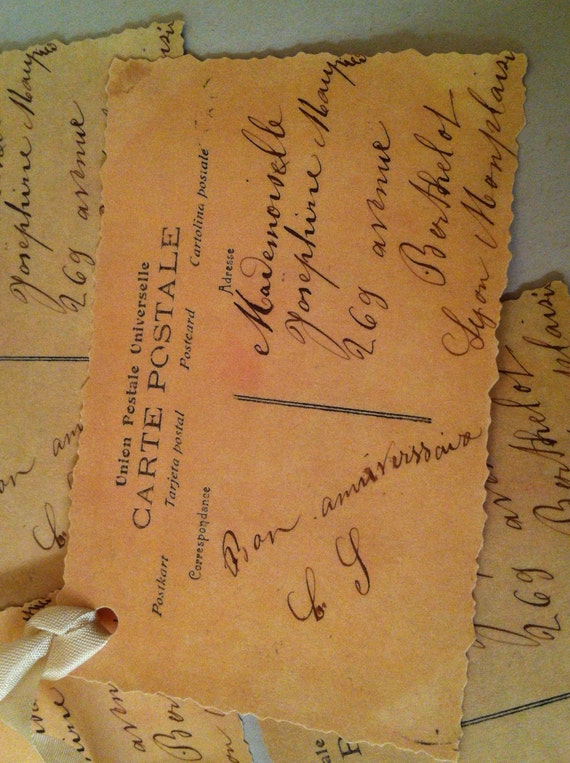 Union Postale Universelle
CARTE POSTALE
Postkart Tarjeta postal Postcard Cartolina postale
Correspondance
Adresse
Bon anniverssaire
L S
Mademoiselle
Josephine May
269 avenue
Berthelot
Lyon Monplaisi
Josephine May
269 avenue
269 av
Berthelot